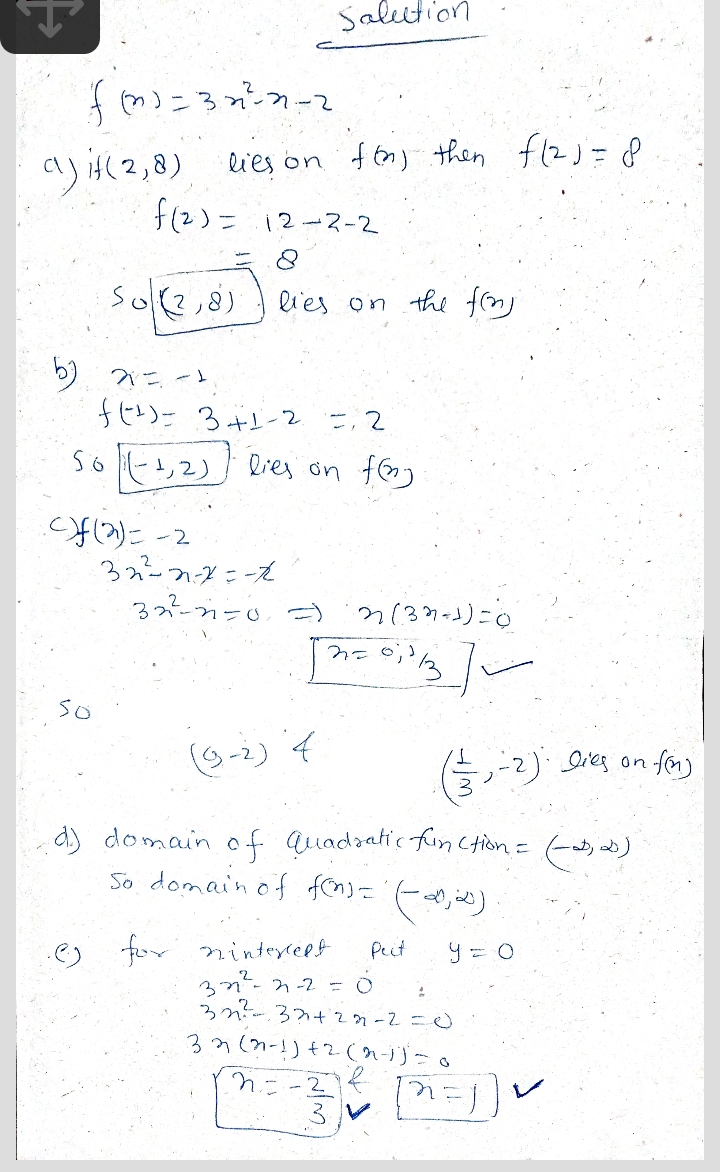 Solution
f(x) = 3x² - x - 2
a) if (2,8) lies on f(x) then f(2) = 8
f(2) = 12 - 2 - 2
= 8
so (2,8) lies on the f(x)
b) x = -1
f(-1) = 3 + 1 - 2 = 2
so (-1,2) lies on f(x)
c) f(x) = -2
3x² - x - 2 = -2
3x² - x = 0 ⇒ x(3x-1) = 0
x = 0, 1/3 ✓
so
(0,-2) & (1/3, -2) lies on f(x)
d) domain of Quadratic function = (-∞, ∞)
So domain of f(x) = (-∞, ∞)
e) for x intercept put y = 0
3x² - x - 2 = 0
3x² - 3x + 2x - 2 = 0
3x(x-1) + 2(x-1) = 0
x = -2/3 ✓ & x = 1 ✓